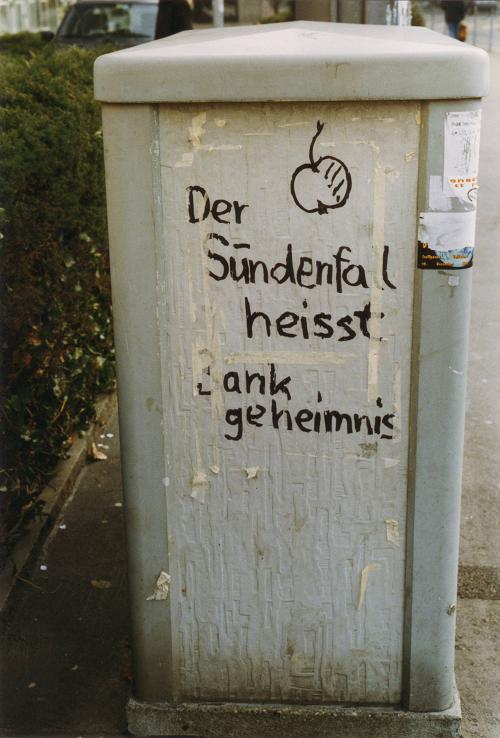 Der
Sündenfall
heisst
Bank
geheimnis